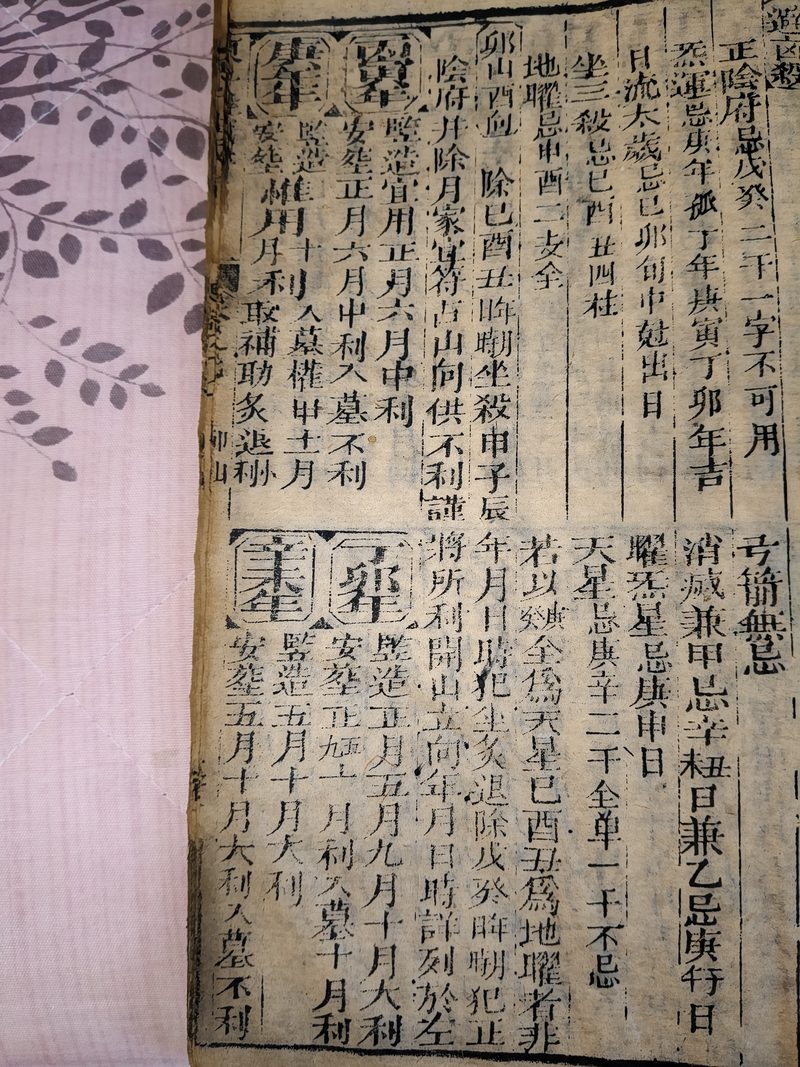 造凶殺
正陰府忌戊癸二干一字不可用
炁運忌庚年孤丁年庚寅丁卯年吉
日流太歲忌己卯旬中尅出日
坐三殺忌巳酉丑四柱
地曜忌申酉二支全
弓箭無忌
消滅兼甲忌辛未丑日兼乙忌庚行日
曜炁星忌庚申日
天星忌庚辛二干全单一干不忌
卯山酉向 除巳酉丑年月日時犯坐殺申子辰
陰府并除月家官符占山向供不利謹
若以庚癸全為天星巳酉丑為地曜者非
年月日時犯坐炙退除戊癸年月日時犯正
將所利開山立向年月日時詳列於左
丙寅年
竪造宜用正月六月中利
安塟正月六月中利入墓不利
庚午年
竪造惟十利
安塟用月利
入墓權用十一月
取補助炙退小利
卯山
丁卯年
竪造正月五月九月十月大利
安塟正五九十月利入墓十月利
辛未年
竪造五月十月大利
安塟五月十月大利入墓不利